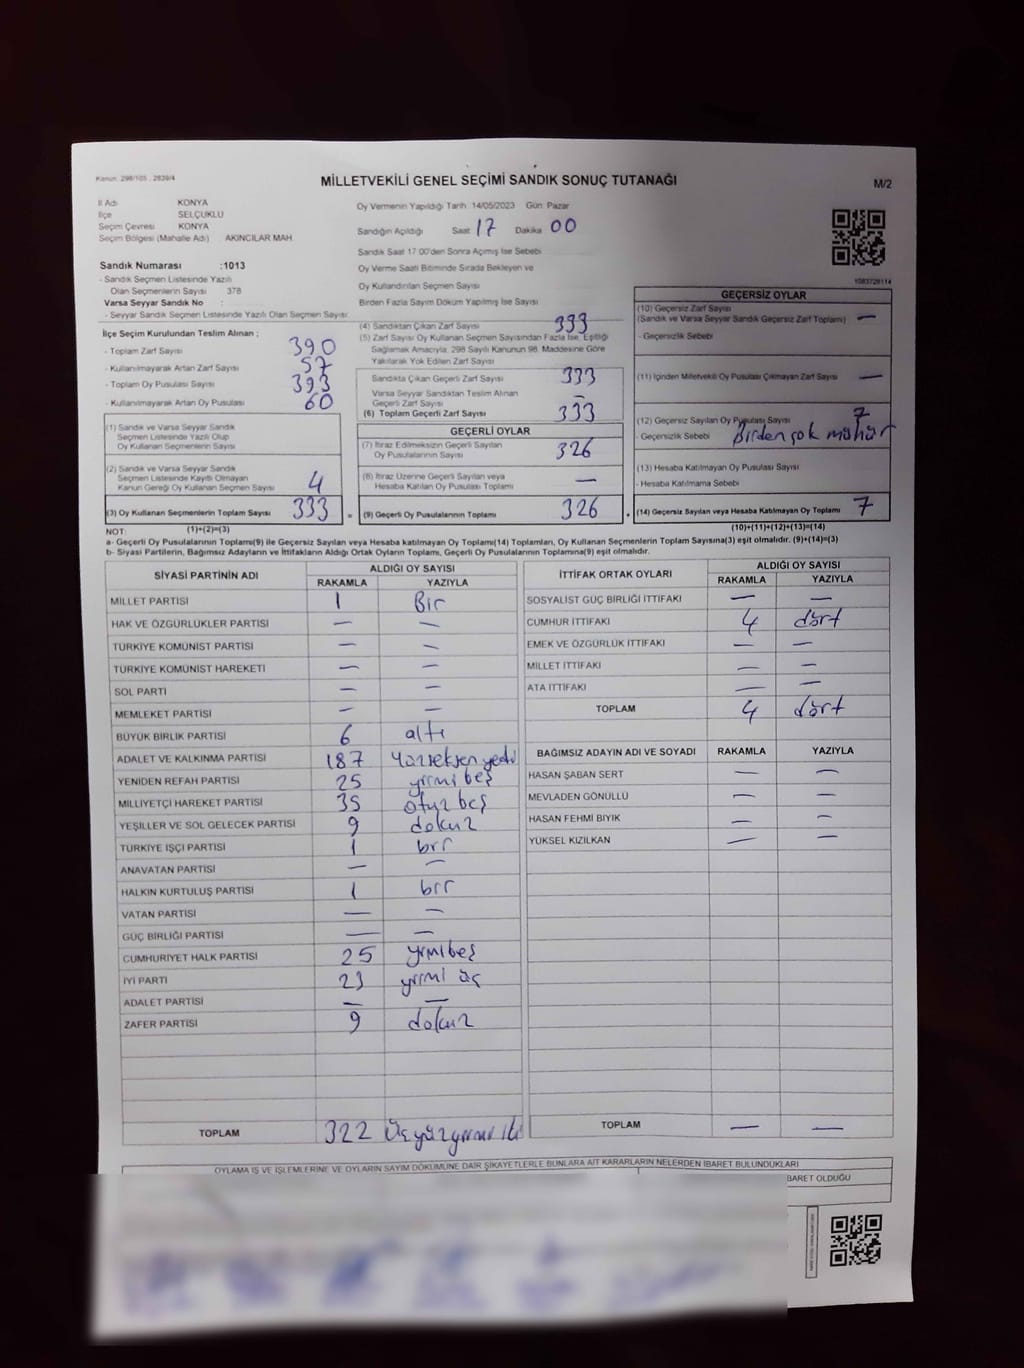 Kanun: 298/105 , 2839/4
MİLLETVEKİLİ GENEL SEÇİMİ SANDIK SONUÇ TUTANAĞI
M/2
İl Adı KONYA
İlçe SELÇUKLU
Seçim Çevresi KONYA
Seçim Bölgesi (Mahalle Adı) : AKINCILAR MAH.
Sandık Numarası :1013
- Sandık Seçmen Listesinde Yazılı
Olan Seçmenlerin Sayısı 378
Varsa Seyyar Sandık No :
- Seyyar Sandık Seçmen Listesinde Yazılı Olan Seçmen Sayısı
Oy Vermenin Yapıldığı Tarih 14/05/2023 Gün: Pazar
Sandığın Açıldığı Saat 17 Dakika 00
Sandık Saat 17:00'den Sonra Açılmış İse Sebebi
Oy Verme Saati Bitiminde Sırada Bekleyen ve
Oy Kullandırılan Seçmen Sayısı
Birden Fazla Sayım Döküm Yapılmış İse Sayısı
İlçe Seçim Kurulundan Teslim Alınan ;
- Toplam Zarf Sayısı 390
- Kullanılmayarak Artan Zarf Sayısı 57
- Toplam Oy Pusulası Sayısı 393
- Kullanılmayarak Artan Oy Pusulası 60
(1) Sandık ve Varsa Seyyar Sandık
Seçmen Listesinde Yazılı Olup
Oy Kullanan Seçmenlerin Sayısı
(2) Sandık ve Varsa Seyyar Sandık
Seçmen Listesinde Kayıtlı Olmayan
Kanun Gereği Oy Kullanan Seçmen Sayısı 4
(3) Oy Kullanan Seçmenlerin Toplam Sayısı 333 =
(1)+(2)=(3)
(4) Sandıktan Çıkan Zarf Sayısı 333
(5) Zarf Sayısı Oy Kullanan Seçmen Sayısından Fazla İse, Eşitliği
Sağlamak Amacıyla, 298 Sayılı Kanunun 98. Maddesine Göre
Yakılarak Yok Edilen Zarf Sayısı
Sandıkta Çıkan Geçerli Zarf Sayısı 333
Varsa Seyyar Sandıktan Teslim Alınan
Geçerli Zarf Sayısı –
(6) Toplam Geçerli Zarf Sayısı 333
GEÇERLİ OYLAR
(7) İtiraz Edilmeksizin Geçerli Sayılan
Oy Pusulalarının Sayısı 326
(8) İtiraz Üzerine Geçerli Sayılan veya
Hesaba Katılan Oy Pusulası Toplamı —
(9) Geçerli Oy Pusulalarının Toplamı 326
1083729114
GEÇERSİZ OYLAR
(10) Geçersiz Zarf Sayısı
(Sandık ve Varsa Seyyar Sandık Geçersiz Zarf Toplamı) —
- Geçersizlik Sebebi
(11) İçinden Milletvekili Oy Pusulası Çıkmayan Zarf Sayısı —
(12) Geçersiz Sayılan Oy Pusulası Sayısı 7
- Geçersizlik Sebebi Birden çok mühür
(13) Hesaba Katılmayan Oy Pusulası Sayısı
- Hesaba Katılmama Sebebi
(14) Geçersiz Sayılan veya Hesaba Katılmayan Oy Toplamı 7
(10)+(11)+(12)+(13)=(14)
NOT:
a- Geçerli Oy Pusulalarının Toplamı(9) ile Geçersiz Sayılan veya Hesaba katılmayan Oy Toplamı(14) Toplamları, Oy Kullanan Seçmenlerin Toplam Sayısına(3) eşit olmalıdır. (9)+(14)=(3)
b- Siyasi Partilerin, Bağımsız Adayların ve İttifakların Aldığı Ortak Oyların Toplamı, Geçerli Oy Pusulalarının Toplamına(9) eşit olmalıdır.
SİYASİ PARTİNİN ADI ALDIĞI OY SAYISI
RAKAMLA YAZIYLA
MİLLET PARTİSİ 1 Bir
HAK VE ÖZGÜRLÜKLER PARTİSİ — —
TÜRKİYE KOMÜNİST PARTİSİ — —
TÜRKİYE KOMÜNİST HAREKETİ — —
SOL PARTİ — —
MEMLEKET PARTİSİ — —
BÜYÜK BİRLİK PARTİSİ 6 altı
ADALET VE KALKINMA PARTİSİ 187 Yüzseksenyedi
YENİDEN REFAH PARTİSİ 25 yirmi beş
MİLLİYETÇİ HAREKET PARTİSİ 35 otuz beş
YEŞİLLER VE SOL GELECEK PARTİSİ 9 dokuz
TÜRKİYE İŞÇİ PARTİSİ 1 bir
ANAVATAN PARTİSİ — —
HALKIN KURTULUŞ PARTİSİ 1 bir
VATAN PARTİSİ — —
GÜÇ BİRLİĞİ PARTİSİ — —
CUMHURİYET HALK PARTİSİ 25 yirmibeş
İYİ PARTİ 23 yirmi üç
ADALET PARTİSİ — —
ZAFER PARTİSİ 9 dokuz
TOPLAM 322 Üçyüzyirmi iki
İTTİFAK ORTAK OYLARI ALDIĞI OY SAYISI
RAKAMLA YAZIYLA
SOSYALİST GÜÇ BİRLİĞİ İTTİFAKI — —
CUMHUR İTTİFAKI 4 dört
EMEK VE ÖZGÜRLÜK İTTİFAKI — —
MİLLET İTTİFAKI — —
ATA İTTİFAKI — —
TOPLAM 4 dört
BAĞIMSIZ ADAYIN ADI VE SOYADI RAKAMLA YAZIYLA
HASAN ŞABAN SERT — —
MEVLADEN GÖNÜLLÜ — —
HASAN FEHMİ BIYIK — —
YÜKSEL KIZILKAN — —
TOPLAM — —
OYLAMA İŞ VE İŞLEMLERİNE VE OYLARIN SAYIM DÖKÜMÜNE DAİR ŞİKAYETLERLE BUNLARA AİT KARARLARIN NELERDEN İBARET BULUNDUKLARI
BARET OLDUĞU